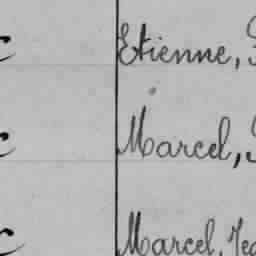 Etienne,
Marcel,
Marcel, Jea